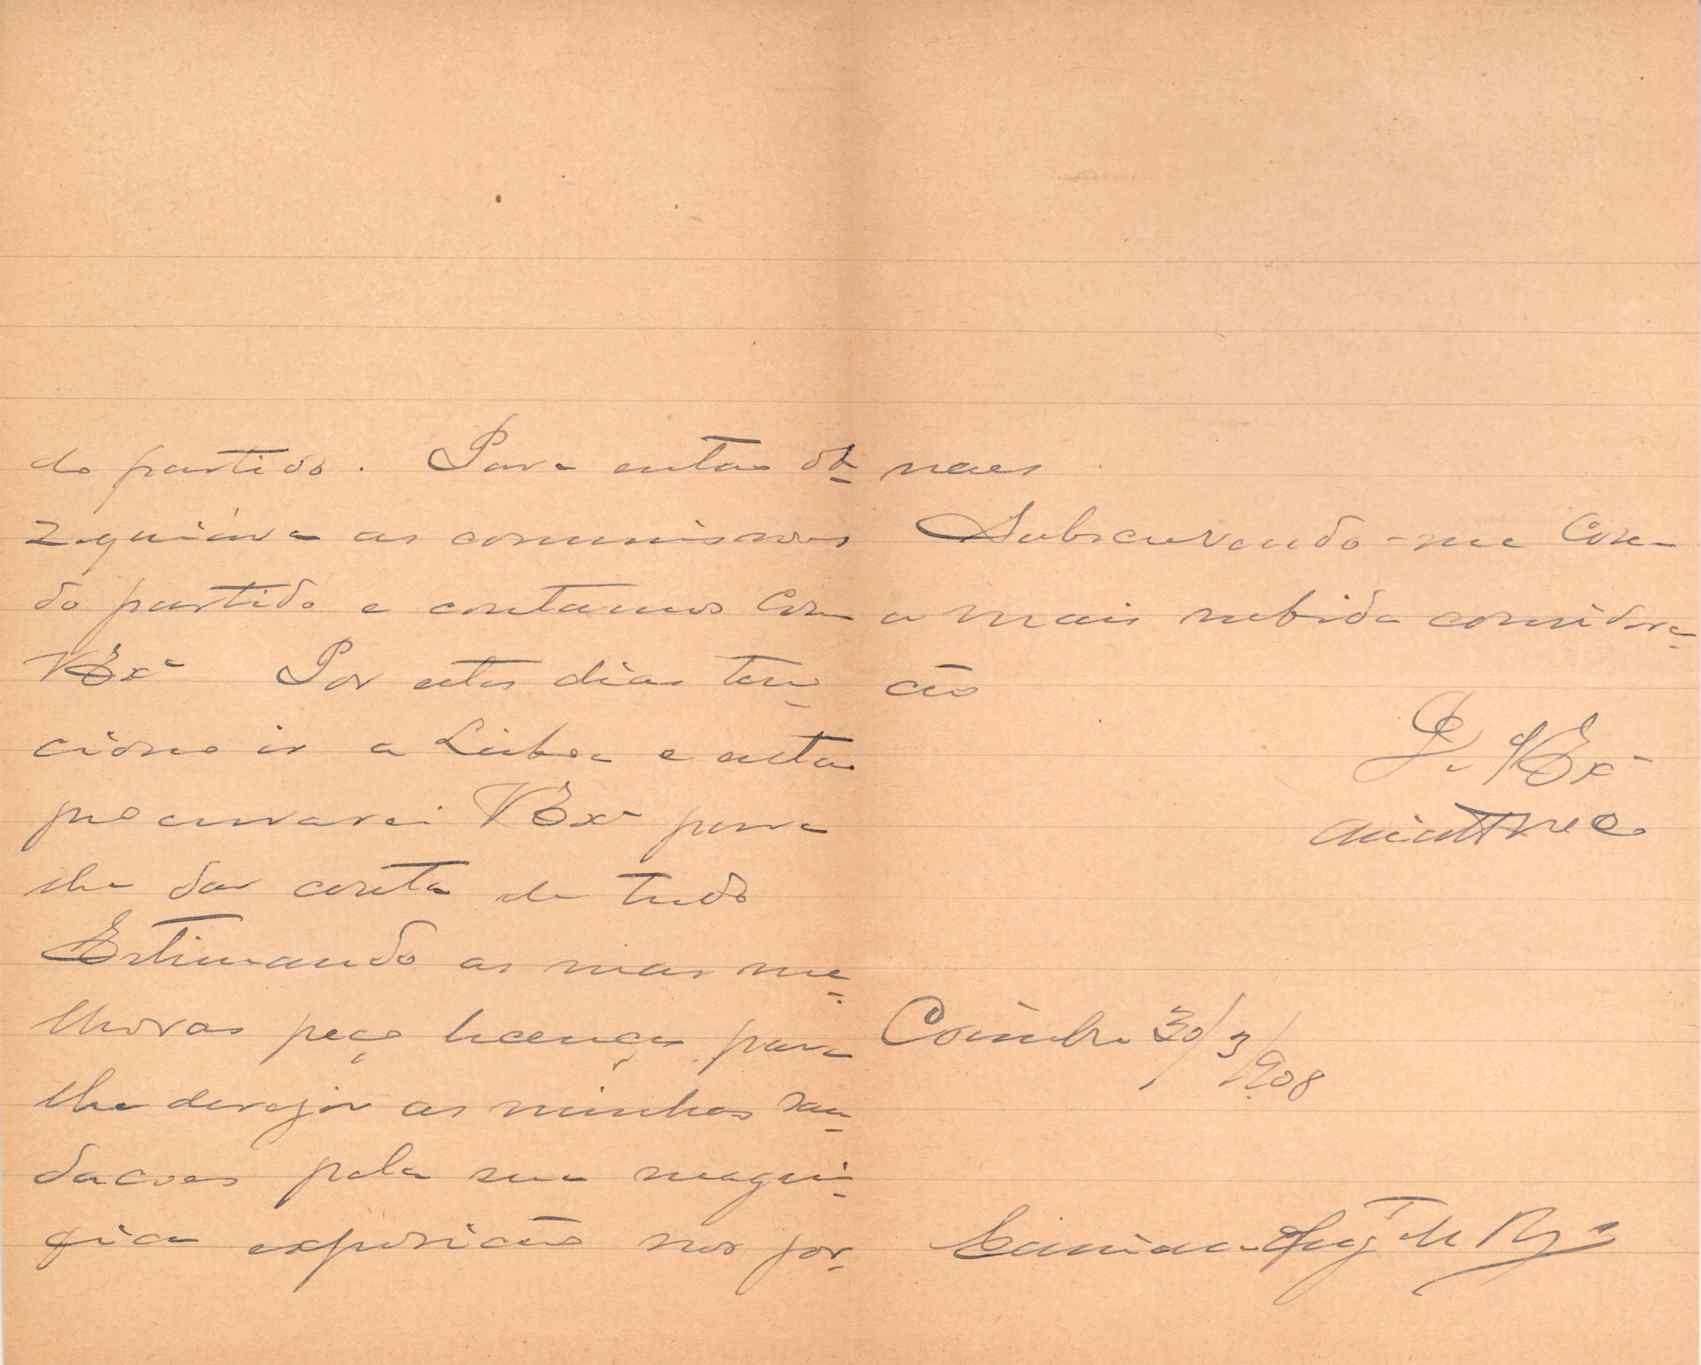 do partido. Para então ob-
zequiára as commissoes
do partido e contamos com
VEx.ª Por estes dias ten-
ciono ir a Lisboa e então
procurarei VEx.ª para
lhe dar conta de tudo
Estimando as suas me-
lhoras peço licença para
lhe desejar as minhas sau-
dacoes pela sua magni-
fica exposição nos jor-
naes
Subscrevendo-me com
a mais subida considera-
ção
D. VEx.ª
Coimbra 30/3/1908